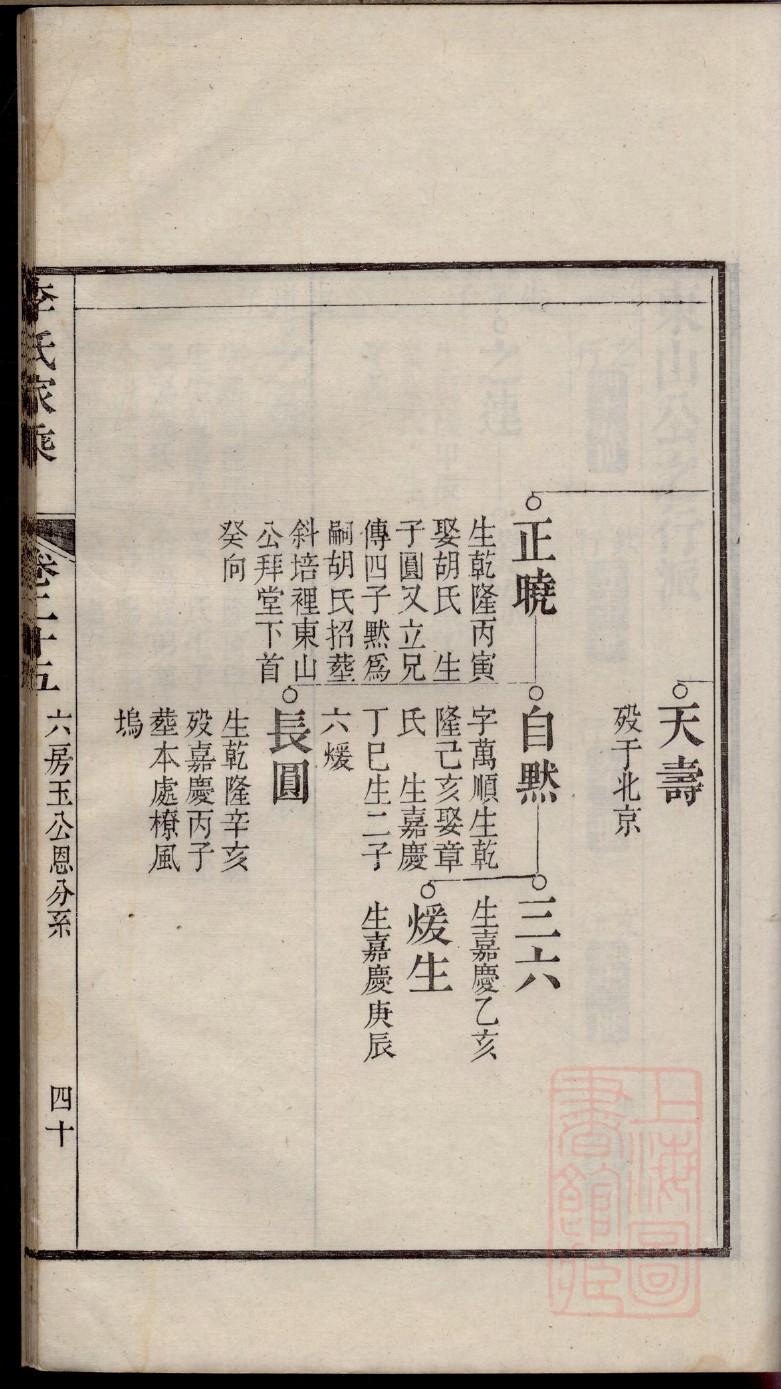 天壽
殁于北京
正曉
生乾隆丙寅
娶胡氏　生
子圓又立兄
傳四子默爲
嗣胡氏招塟
斜培裡東山
公拜堂下首
癸向
自默
字萬順生乾
隆己亥娶章
氏　生嘉慶
丁巳生二子
六煖
三六
生嘉慶乙亥
煖生
生嘉慶庚辰
長圓
生乾隆辛亥
殁嘉慶丙子
塟本處橑風
塢
李氏家乘
卷二十五
六房玉公恩分系
四十
上海圖
書館藏